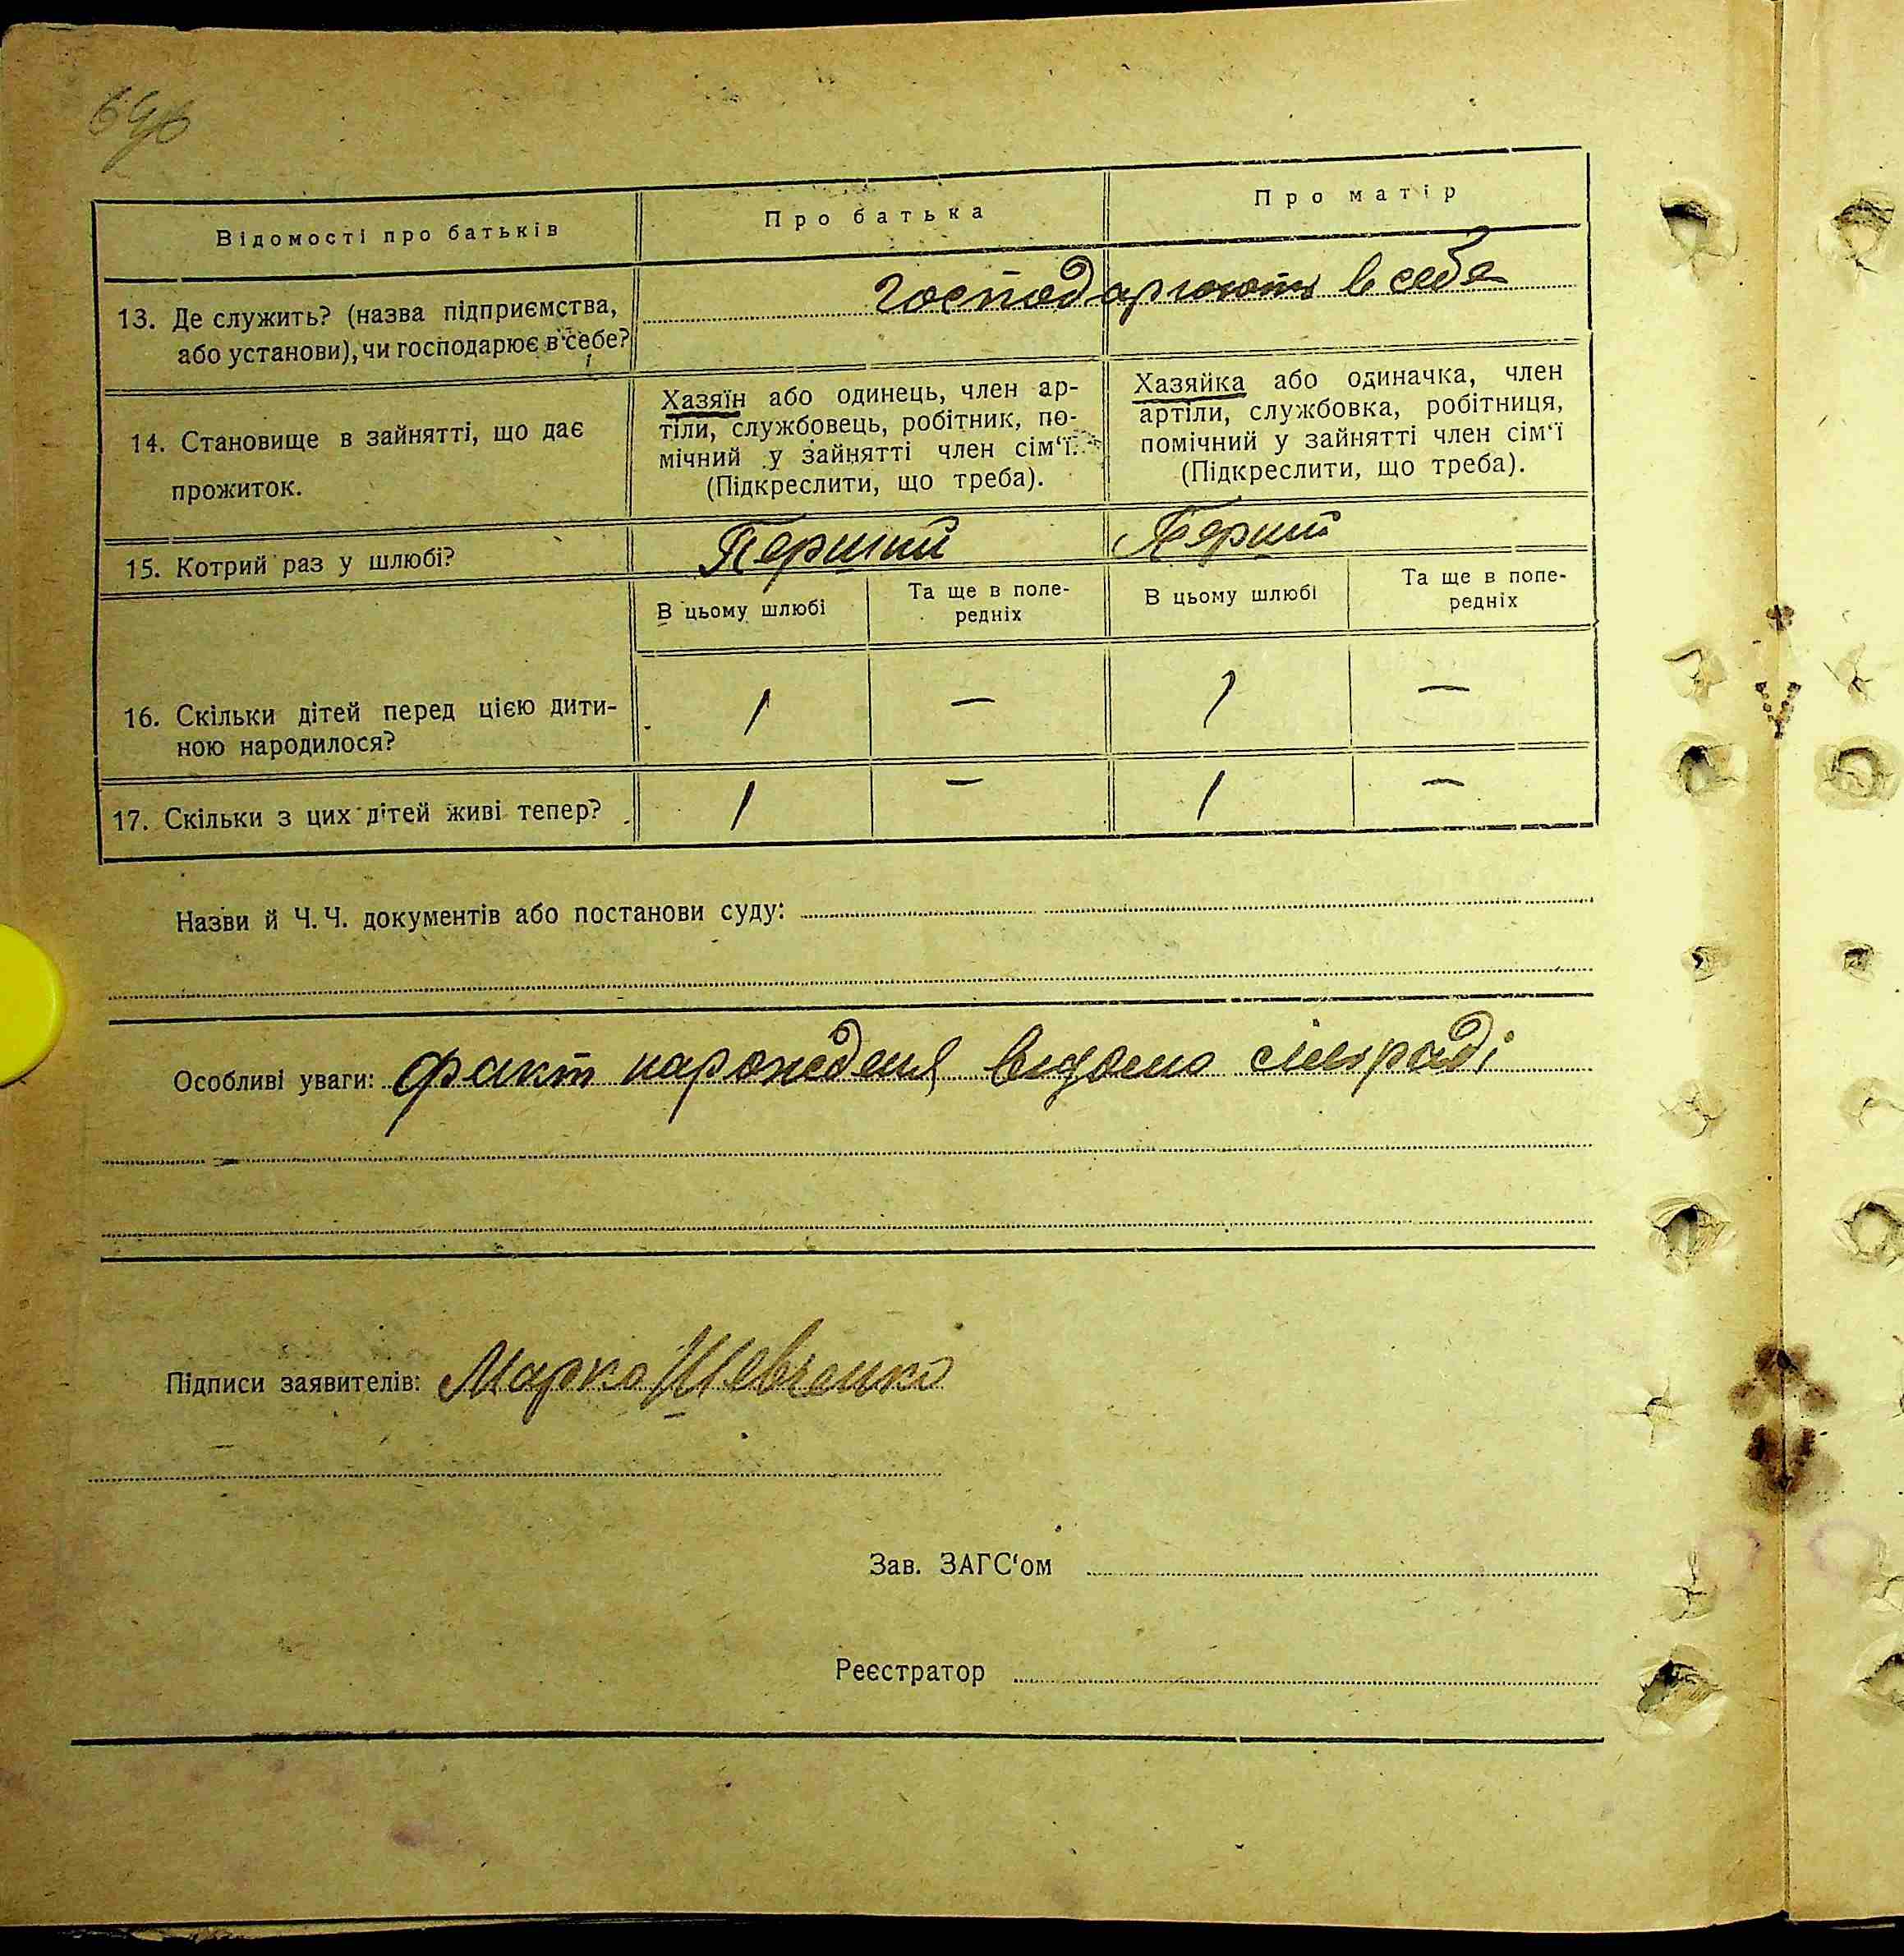 Відомості про батьків
Про батька
Про матір
13. Де служить? (назва підприємства,
або установи), чи господарює в себе?
господарюють в себе
14. Становище в зайнятті, що дає
прожиток.
Хазяїн або одинець, член ар-
тіли, службовець, робітник, по-
мічний у зайнятті член сім'ї.
(Підкреслити, що треба).
Хазяйка або одиначка, член
артіли, службовка, робітниця,
помічний у зайнятті член сім'ї
(Підкреслити, що треба).
15. Котрий раз у шлюбі?
Перший
Перший
В цьому шлюбі
Та ще в попе-
редніх
В цьому шлюбі
Та ще в попе-
редніх
16. Скільки дітей перед цією дити-
ною народилося?
1
—
1
—
17. Скільки з цих дітей живі тепер?
1
—
1
—
Назви й Ч.Ч. документів або постанови суду:
Особливі уваги: факт народженя відомо сільраді
Підписи заявителів: Марко Шевченко
Зав. ЗАГС'ом
Реєстратор